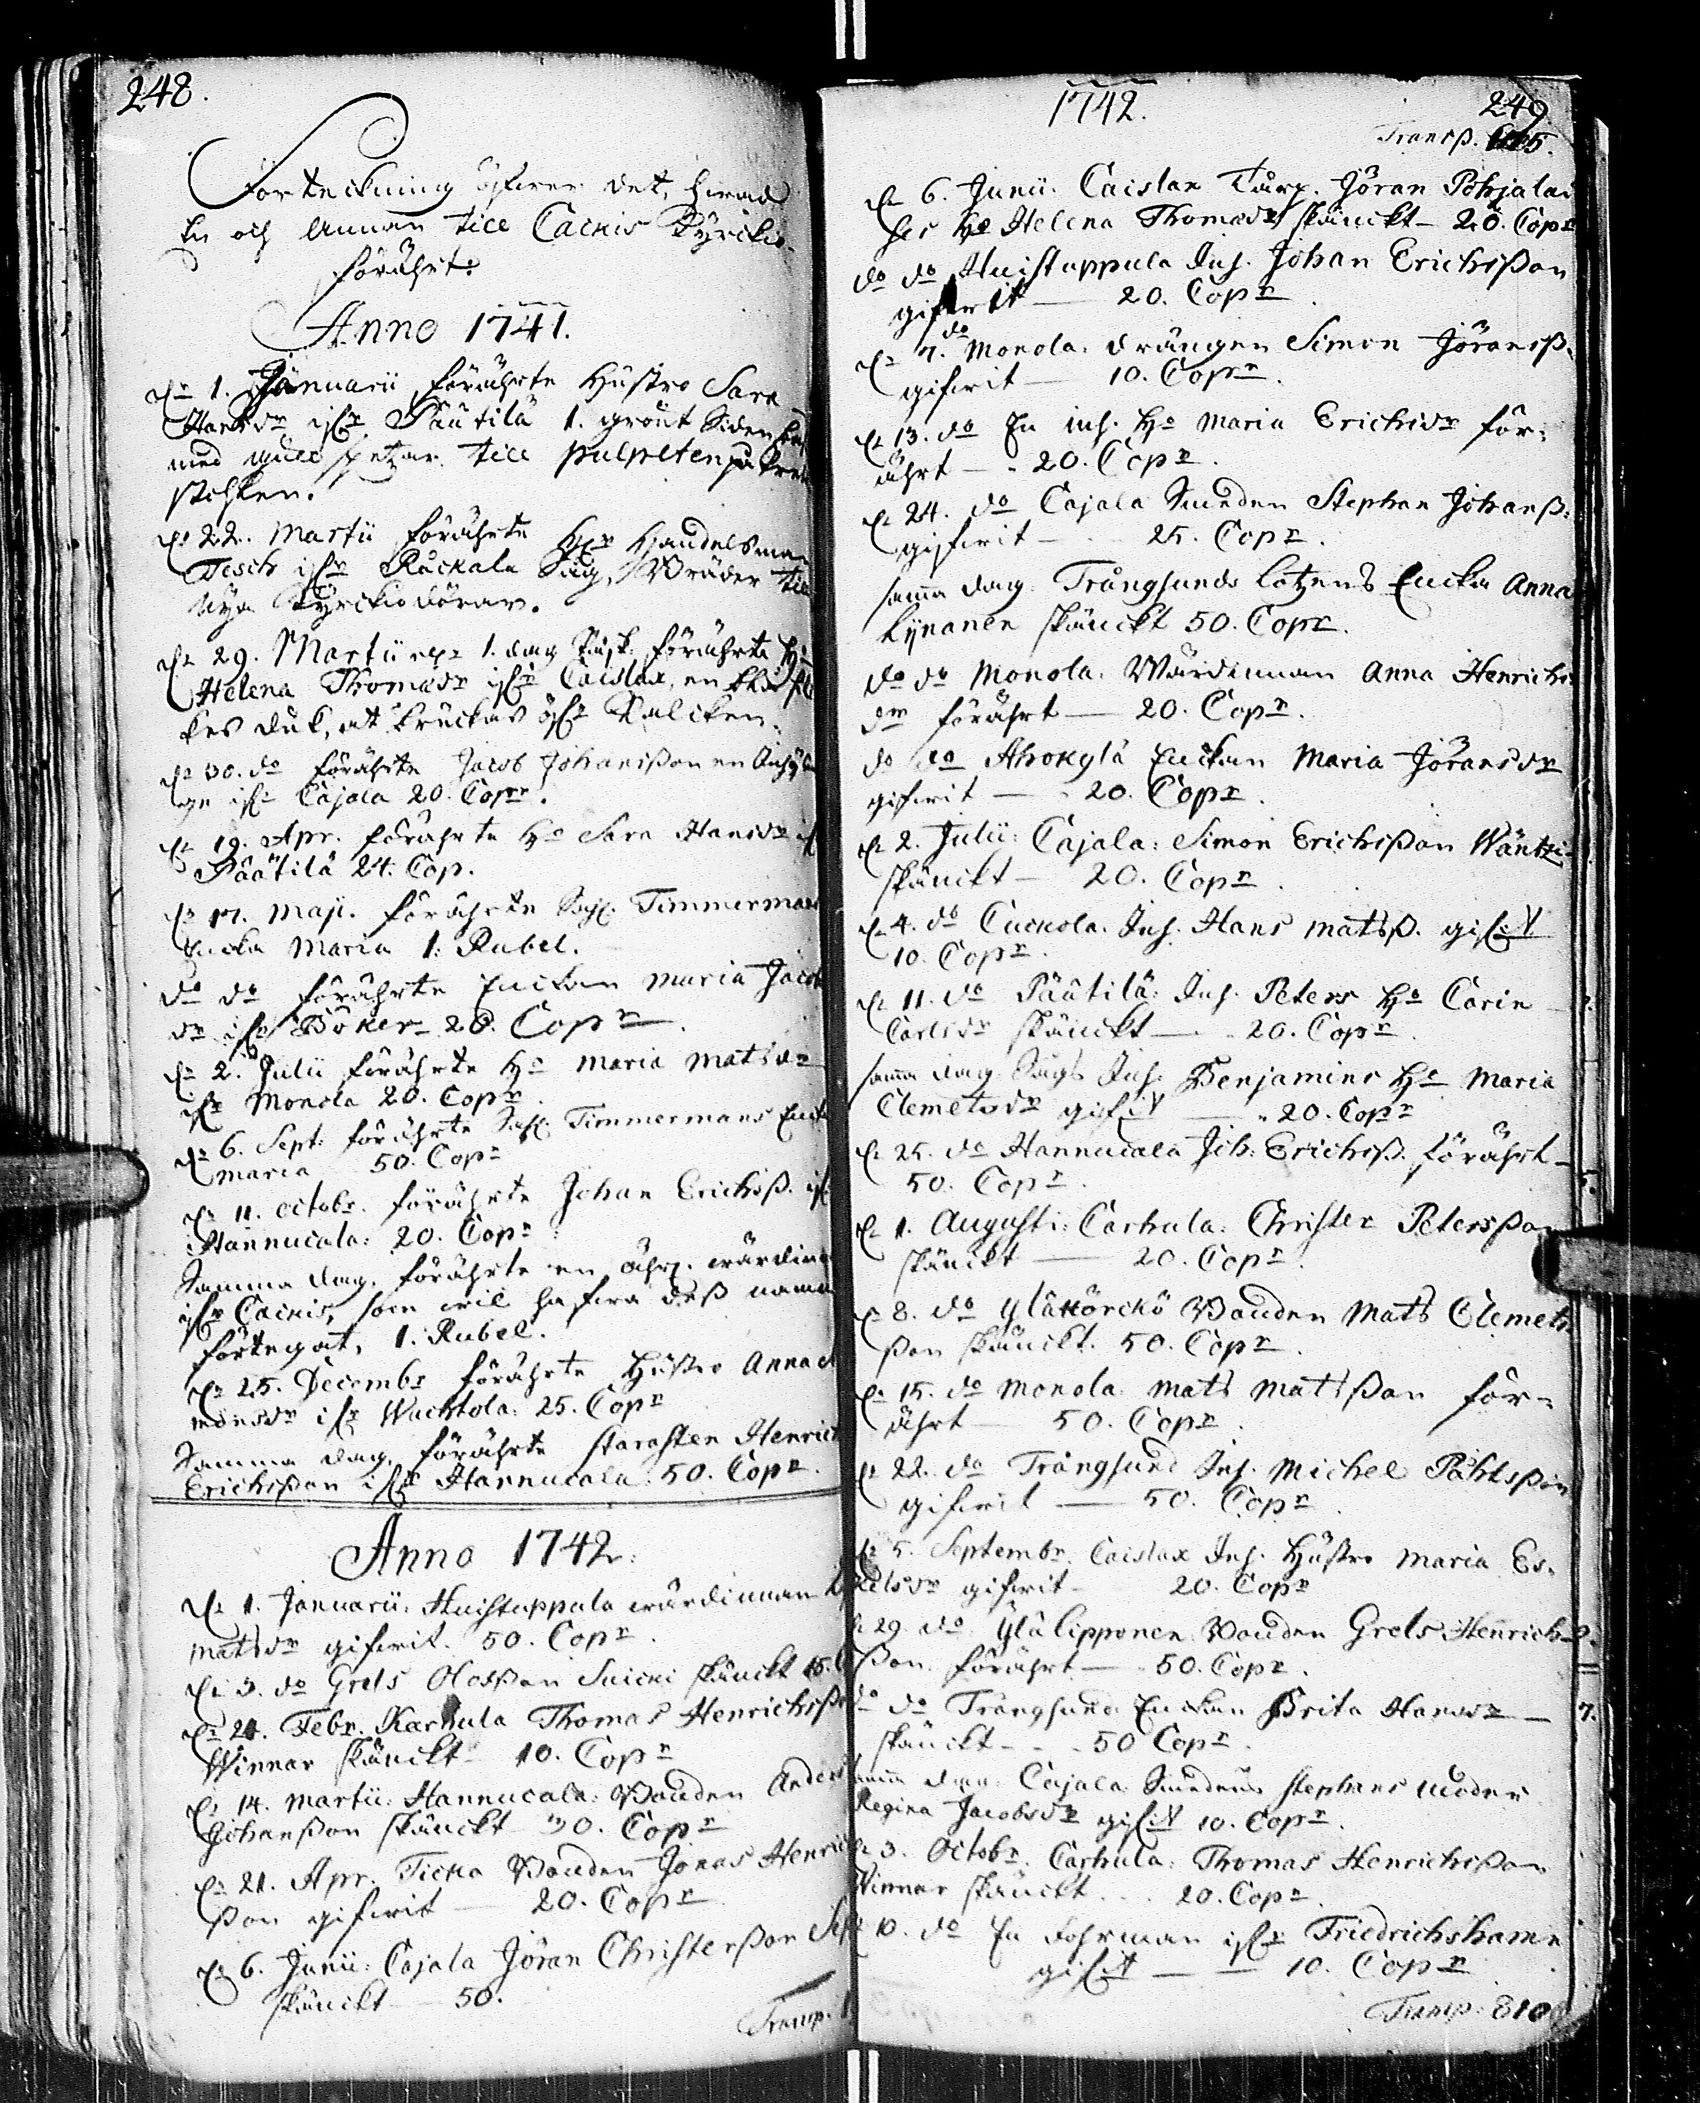 248.
Forteckning öfwer det, hwad
En och Annan till Cackis Kyrckio
förährt:
Anno 1741.
dn 1. Januarii förährte Hustro Sara
Hansdr ifr Päätilä 1. grönt Siden
med gull spetzar till pulpeten
stohlen.
dn 22. Martii förährte Hr Handelsman
Tesch ifr Råckala Såg, Bräder till
Nya Kyrckiodörar.
dn 29. Martii 1. dag Påsk. förährte Ho
Helena Thomasdr ifr Caislax, en
kes duk, at bruckas öfr Kalcken.
dn 30. do förährte Jacob Johansson en
ge ifr Cajala 20. Copr.
dn 19. Apr. förährte Ho Sara Hansdr if
Päätilä 24. Cop.
dn 17. Maji. förährte Timmermans
Encka Maria 1. Rubel.
do do förährte Enckan Maria Jacobs
dr ifr Böker 20. Copr
dn 2. Julii förährte Ho Maria Matsdr
ifr Monola 20. Copr
dn 6. Sept: förährte Timmermans Enck
Maria 50. Copr
dn 11. Octobr. förährte Johan Erichsß. if
Hannucala: 20. Copr
Samma dag. förährte en ährl. wärdinna
ifr Cackis, som wil hafwa dess namn
förtegat, 1. Rubel.
dn 25. Decembr förährte Hustro Anna
monsdr ifr Wachtola: 25. Copr
Samma dag. förährte starosten Henrich
Erichsson ifr Hannucala: 50. Copr.
Anno 1742.
dn 1. Januarii: Huistuppula wärdinnan
Matsdr gifwit. 50. Copr.
dn 3. do Grels Olosson Suicki skänckt 15.
dn 21. Febr. Karhula Thomas Henrichss
Winnar skänckt 10. Copr
dn 14. Martii: Hannucala: Bonden Anders
Johansson skänckt 30. Copr
dn 21. Apr. Ticka Bonden Jonas Henrich
sson gifwit — 20. Copr
dn 6. Junii: Cajala Jöran Christersson
skänckt — 50.
Transp.
1742.
249.
Transp.
dn 6. Junii: Caislax Torp. Jöran Pohjalai
ses Ho Helena Thomasdr skänckt — 20. Copr
do do Huistuppula Inh. Johan Erichsson
gifwit — 20. Copr.
dn 7. do Monola. Drängen Simon Jöranss.
gifwit — 10. Copr.
dn 13. do En inh. Ho Maria Erichsdr för-
ährt — 20. Copr.
dn 24. do Cajala Smeden Stephan Johanss:
gifwit — 25. Copr.
samma dag. Trångsunds Lotzens Encka Anna
Kynanen skänckt 50. Copr.
do do Monola. Wärdinnan Anna Henrichs
dr förährt — 20. Copr.
do do Ahokylä Enckan Maria Jöransdr
gifwit — 20. Copr.
dn 2. Julii: Cajala: Simon Erichsson Wäntzi
skänckt — 20. Copr.
dn 4. do Cuckola. Inh. Hans Matsß. gifwit
10. Copr.
dn 11. do Päätilä: Inh. Peters Ho Carin
Carlsdr skänckt — 20. Copr
samma dag Sågs Inh. Benjamins Ho Maria
Clemetsdr gifwit — 20. Copr
dn 25. do Hannucala Joh: Erichsß. förährt
50. Copr.
dn 1. Augusti: Carhula: Christer Petersson
skänckt — 20. Copr.
dn 8. do Yläkörckö Bonden Mats Clemets
sson skänckt. 50. Copr.
dn 15. do Monola: Mats Matsson för-
ährt — 50. Copr.
dn 22. do Trångsund Inh. Michel Påhlsson
gifwit — 50. Copr
dn 5. Septembr. Caislax Inh. Hustro Maria Es-
kelsdr gifwit — 20. Copr
29. do Yläkipponen Bonden Grels Henrich
sson förährt — 50. Copr.
do do Trångsund Enckan Brita Hansdr
skänckt — 50 Copr.
samma dag. Cajala Smedens Stephans moder
Regina Jacobsdr gifwit 10. Copr.
dn 3. Octobr. Carhula: Thomas Henrichsson
Winnar skänckt 20. Copr.
10. do En Fohrman ifr Friedrichshamn
gifwit — 10. Copr
Transp. 810